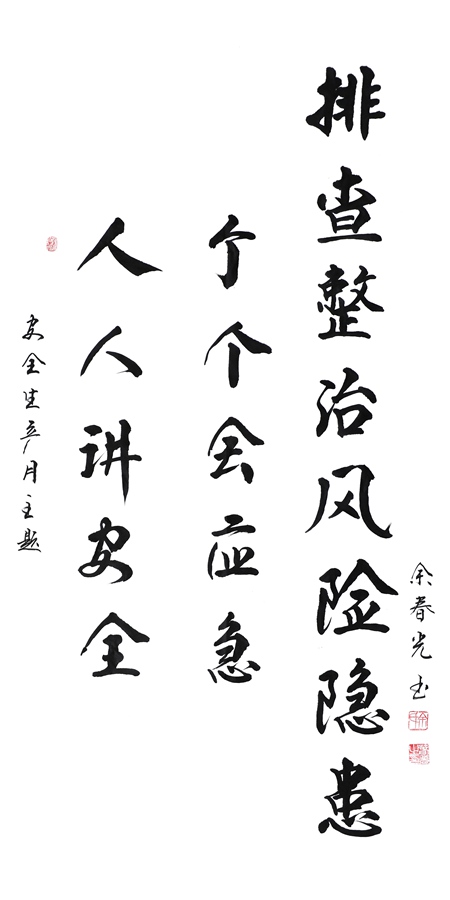 安全生产月主题
人人讲安全
个个会应急
排查整治风险隐患
余春光书